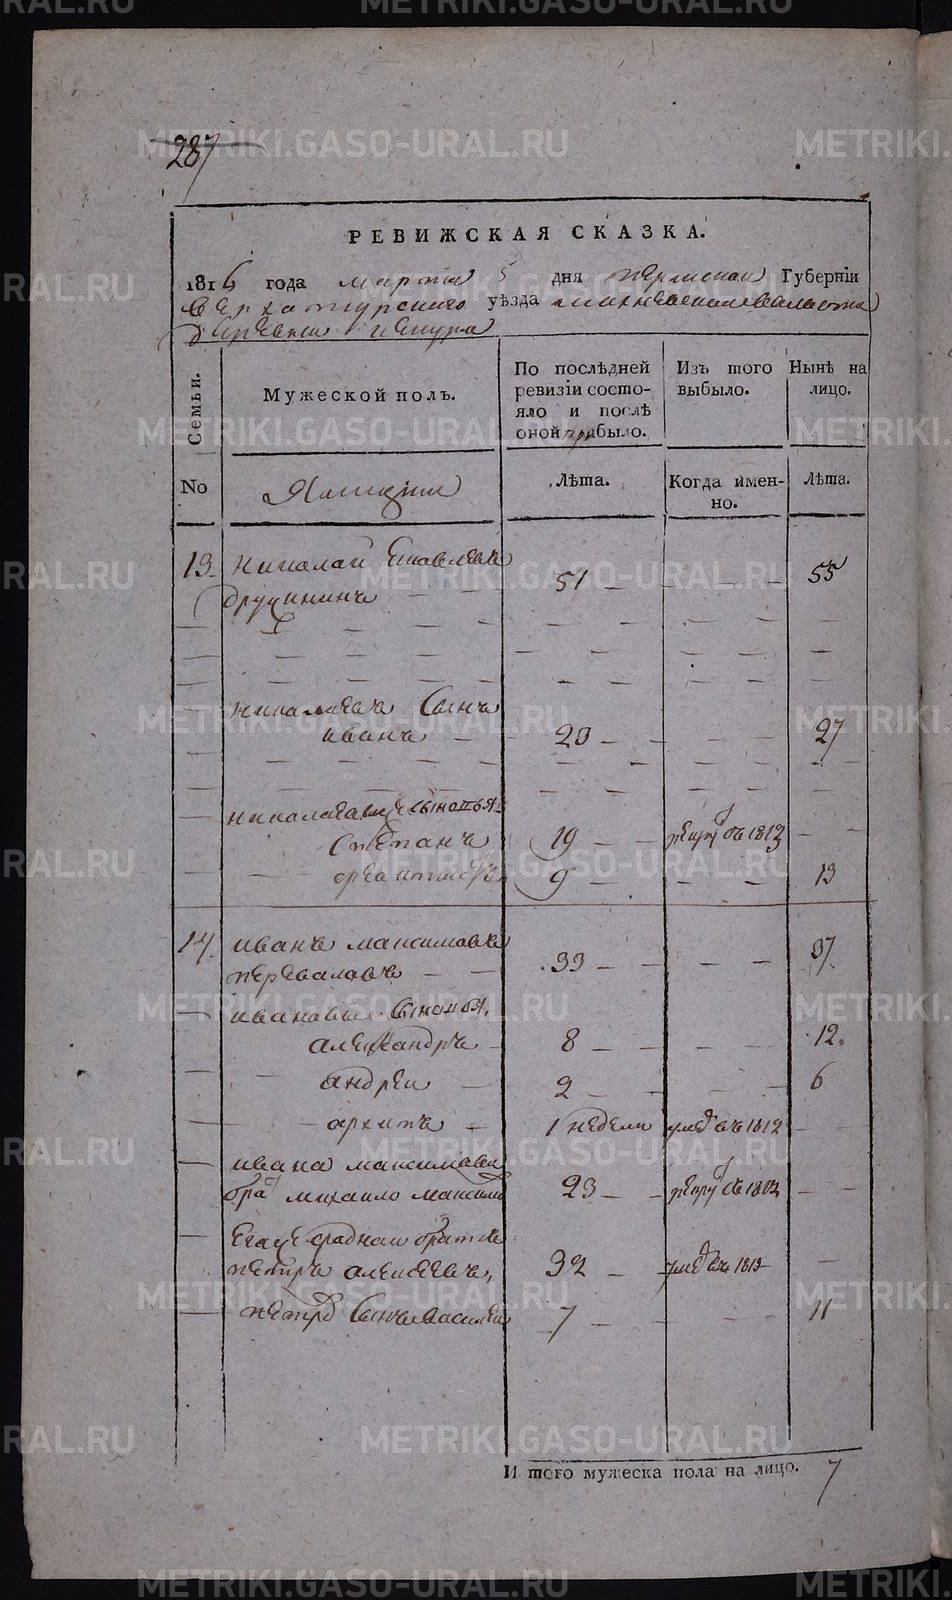 287
РЕВИЖСКАЯ СКАЗКА.
1816 года марта 5 дня пермской Губерніи
верхотурскаго уѣзда махневской волости
деревни
Семьи.
Мужеской полъ.
По послѣдней ревизіи состояло и послѣ оной прибыло.
Изъ того выбыло.
Нынѣ на лицо.
No
Ямщики
Лѣта.
Когда именно.
Лѣта.
13. николаи яковлевъ
дружининъ 51 55
николаевъ сынъ
иванъ 23 27
николаевы сыновья
степанъ 19 рекрут въ 1813
9 13
14. иванъ максимовъ
переваловъ 33 37
ивановы сыновья,
александръ 8 12.
андреи 2 6
архипъ 1 недели умре въ 1812
ивана максимова
брат михаило максимо 23 рекру въ 1812
его же родной братъ
петръ алексеевъ, 32 умре въ 1813
петра сынъ василеи 7 11
И того мужеска пола на лицо. 7
METRIKI.GASO-URAL.RU